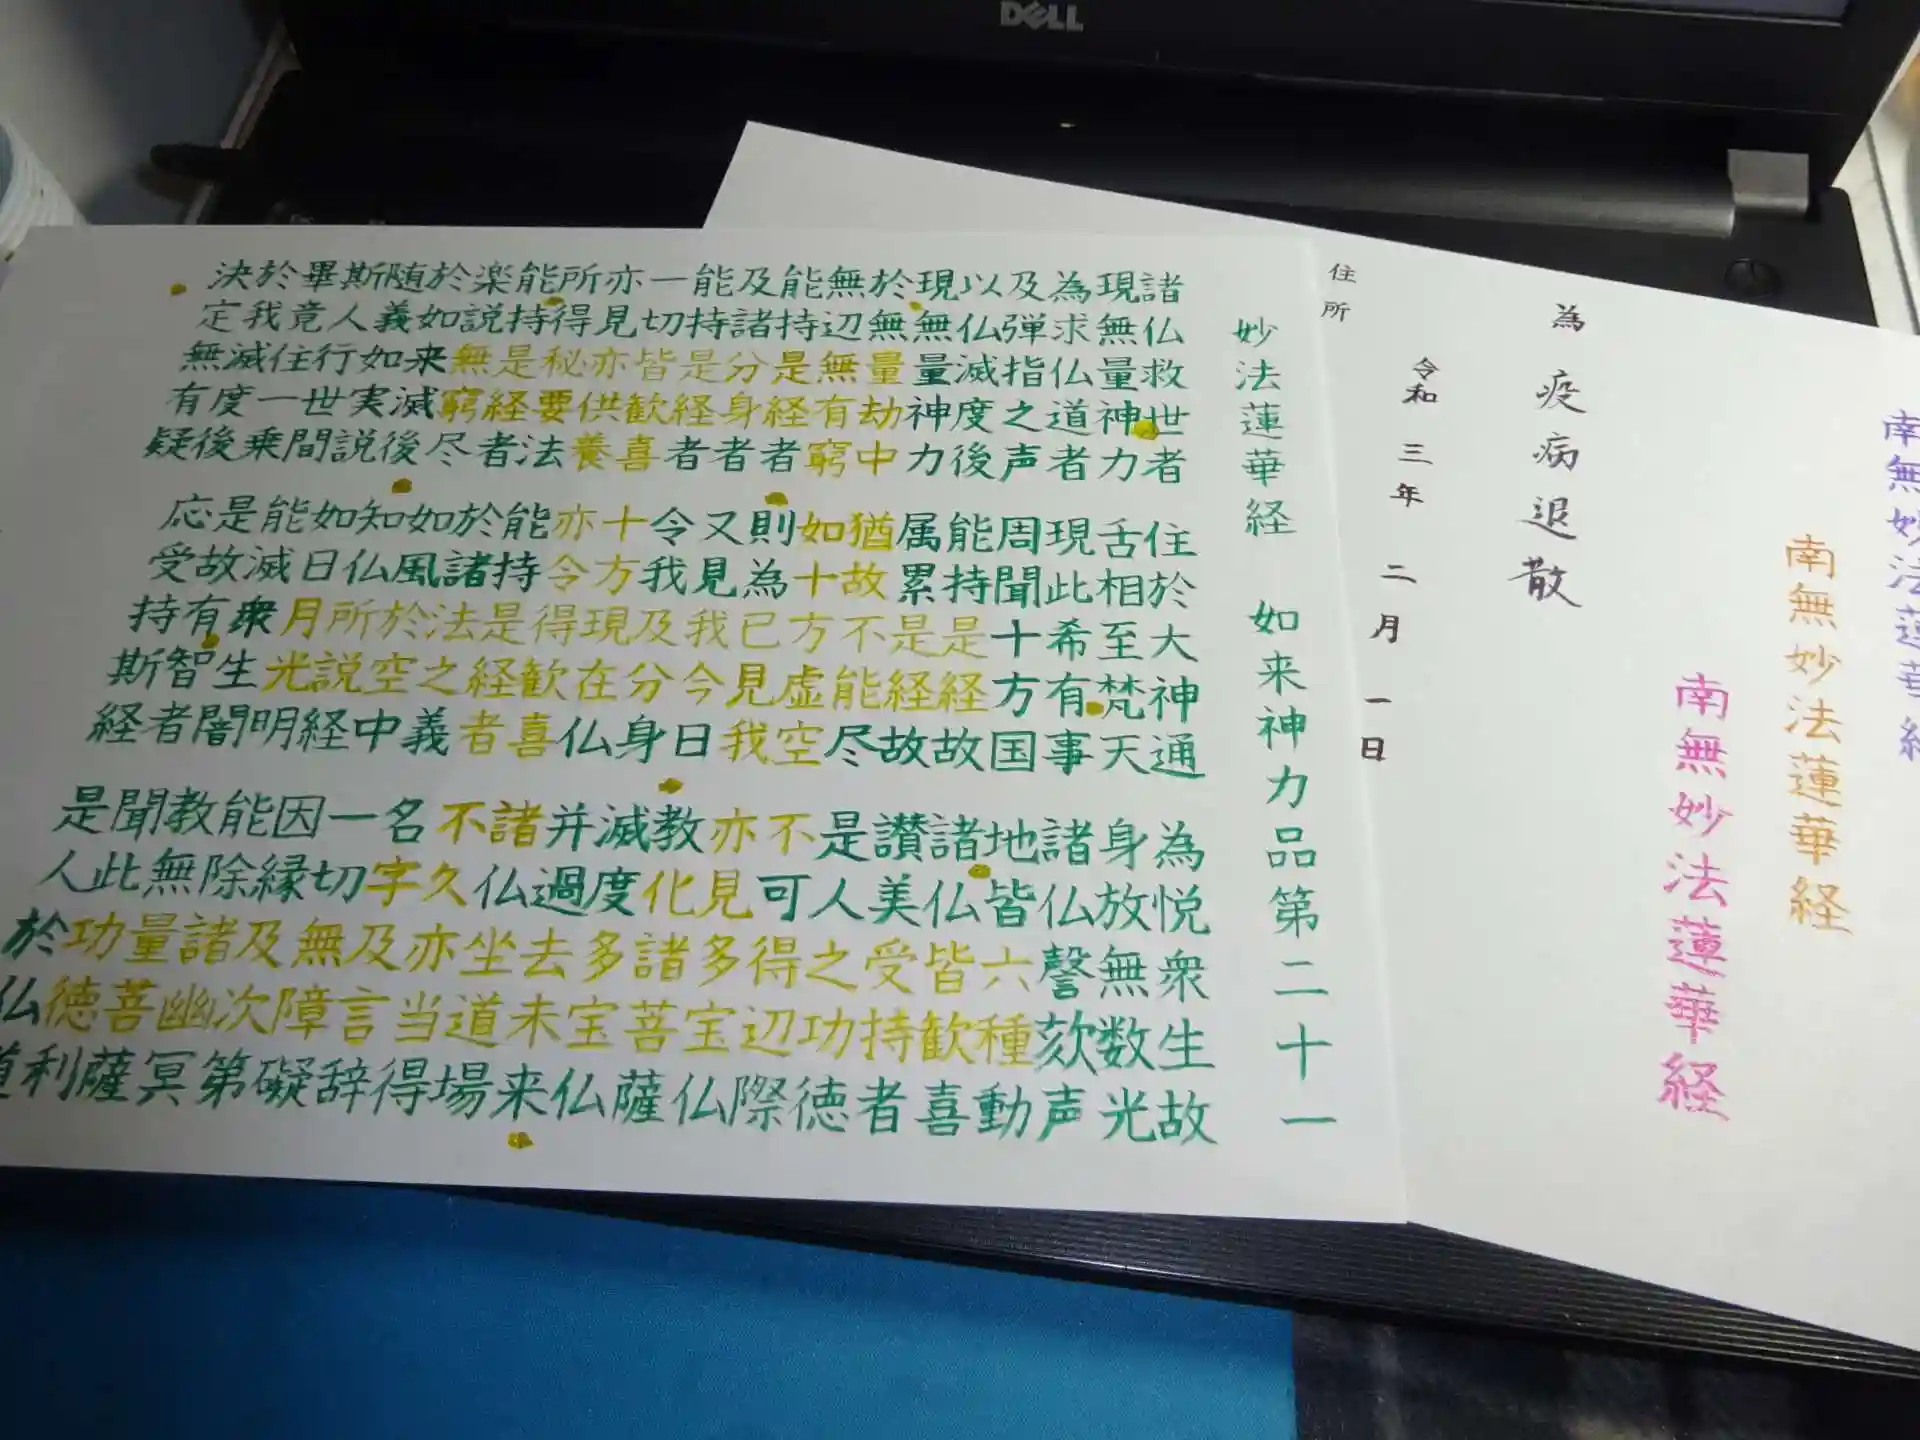 南無妙法蓮華経
南無妙法蓮華経
南無妙法蓮華経
為 疫病退散
令和 三年 二月 一日
住所
妙法蓮華経 如来神力品第二十一
諸仏救世者 住於大神通 為悦衆生故
現無量神力 舌相至梵天 身放無数光
為求仏道者 現此希有事 諸仏謦欬声
及弾指之声 周聞十方国 地皆六種動
以仏滅度後 能持是経故 諸仏皆歓喜
現無量神力 属累是経故 讃美受持者
於無量劫中 猶故不能尽 是人之功徳
無辺無有窮 如十方虚空 不可得辺際
能持是経者 則為已見我 亦見多宝仏
及諸分身者 又見我今日 教化諸菩薩
能持是経者 令我及分身 滅度多宝仏
一切皆歓喜 十方現在仏 并過去未来
亦見亦供養 亦令得歓喜 諸仏坐道場
所得秘要法 能持是経者 不久亦当得
能持是経者 於諸法之義 名字及言辞
楽説無窮尽 如風於空中 一切無障礙
於如来滅後 知仏所説経 因縁及次第
随義如実説 如日月光明 能除諸幽冥
斯人行世間 能滅衆生闇 教無量菩薩
畢竟住一乗 是故有智者 聞此功徳利
於我滅度後 応受持斯経 是人於仏道
決定無有疑
DELL